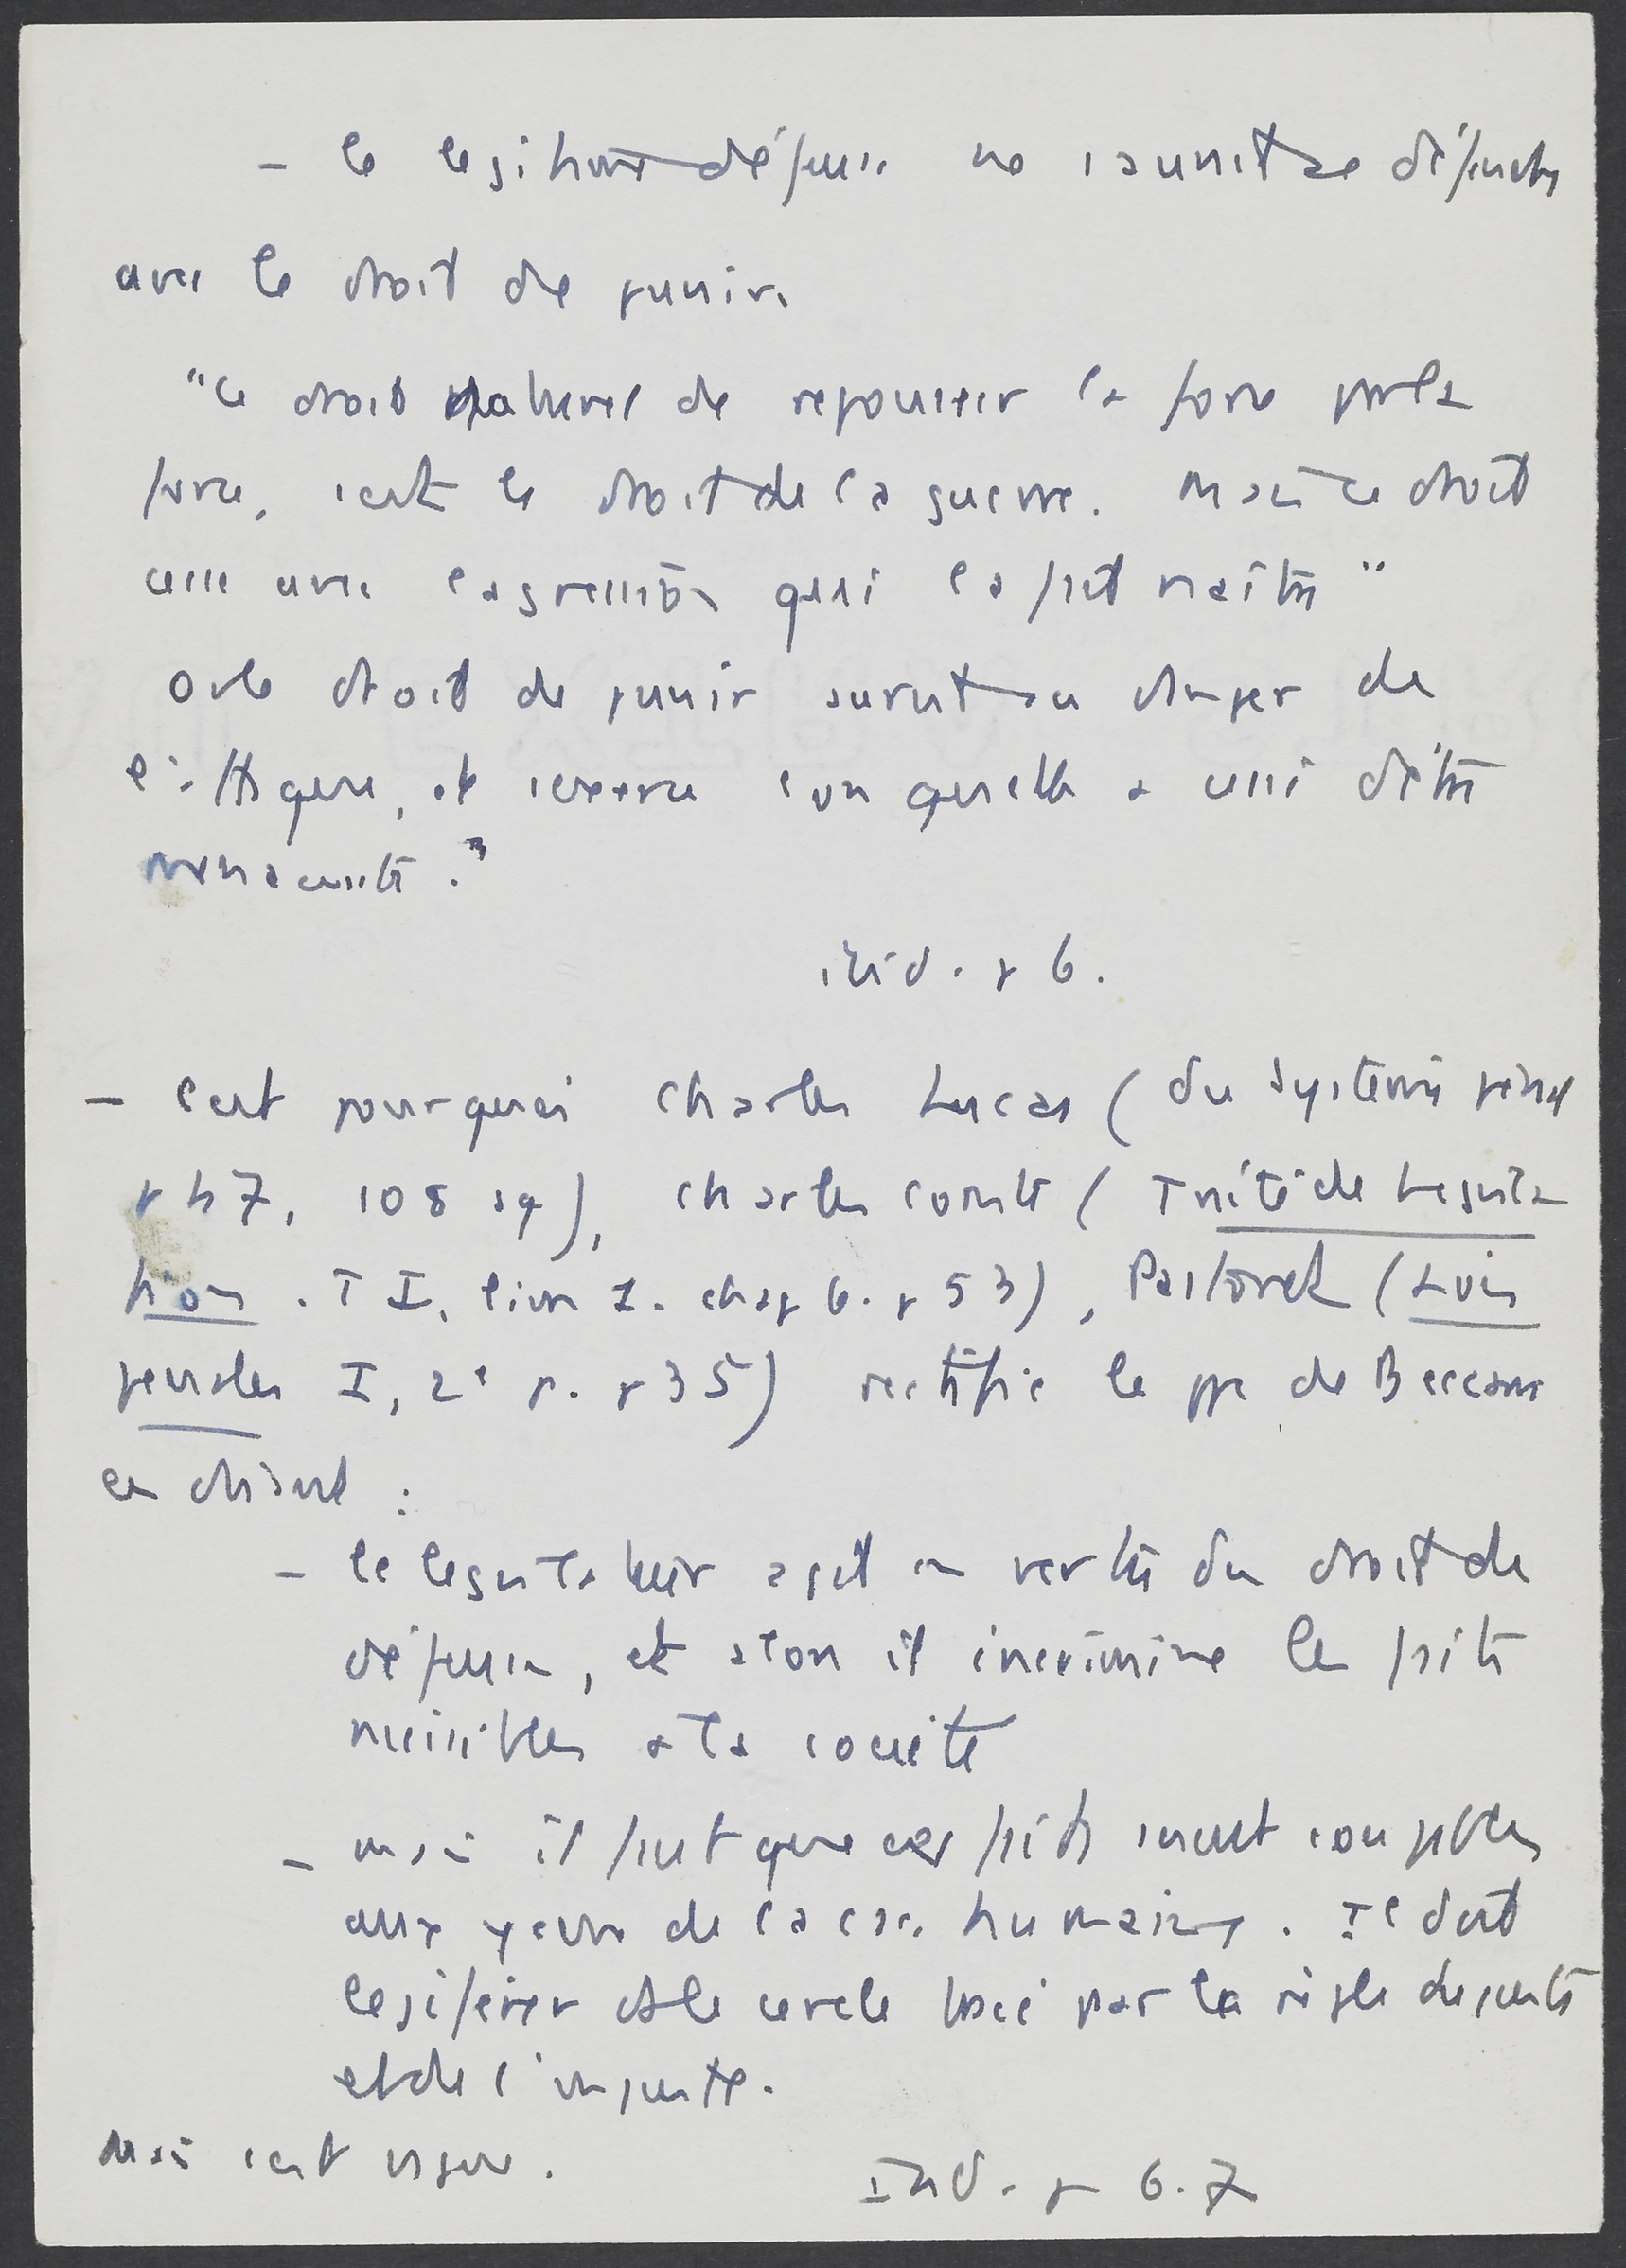 - la legitime défense ne saurait se défendre
avec le droit de punir.
"Ce droit naturel de repousser la force par la
force, c'est le droit de la guerre. Mais ce droit
cesse avec l'agression qui l'a fait naître"
Or le droit de punir survit au danger de
l'attaque, et s'exerce lorsqu'elle a cessé d'être
menaçante."
ibid. p 6.
- C'est pourquoi Charles Lucas (Du système pénal
p 107, 108 sq), Charles Comte (Traité de Législa
tion. T I, livre I. chap 6. p 53), Pastoret (Lois
penales I, 2e p. p 35) rectifie le ppe de Beccaria
en disant :
- le legislateur agit en vertu du droit de
défense, et alors il incrimine les faits
nuisibles à la société
- mais il faut que ces faits soient coupables
aux yeux de la csc. humaine. Il doit
legiférer ds le cercle tracé par la règle du juste
et de l'injuste.
Mais c'est vague.
Ibid. p 6.7